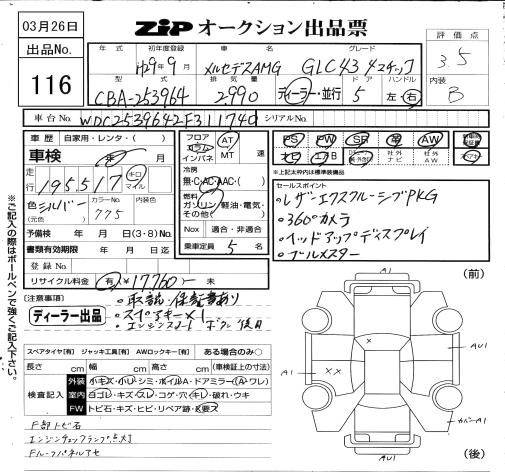 03月26日
ZIP オークション出品票
出品No.
116
年式
初年度登録
車名
グレード
H29年9月
メルセデスAMG
GLC43 4マチック
評価点
3.5
内装
B
型式
排気量
ドア
ハンドル
CBA-253964
2.990
ディーラー・並行
5
左・右
車台No.
WDC2539642F311740
シリアルNo.
車歴
自家用・レンタ・( )
車検
年 月
走行
195517
キロ
マイル
色
シルバー
(元色)
カラーNo.
775
内装色
予備検 年 月 日(3・8)No.
書類有効期限 年 月 日迄
登録No.
リサイクル料金 有 ¥17760- 未
フロア
コラム
インパネ
AT
MT 速
冷房
無・C・AC・AAC・( )
燃料
ガソリン・軽油・電気・
その他( )
Nox 適合・非適合
乗車定員 5 名
PS
PW
SR
革
AW
ナビ
エアB
社外
ナビ
社外
AW
※上記太枠内は標準装備品
セールスポイント
・レザーエクスクルーシブPKG
・360°カメラ
・ヘッドアップディスプレイ
・ブルメスター
(注意事項)
・取説・保証書あり
ディーラー出品
・スペアキー×1
スペアタイヤ[有] ジャッキ工具[有] AWロックキー[有] ある場合のみ○
長さ cm 幅 cm 高さ cm (車検証上の寸法)
検査記入
外装
小キズ・小U・シミ・ホイルA・ドアミラー(A・ワレ)
室内
ヨゴレ・キズ・スレ・コゲ・穴・キレ・破れ・ウキ
FW
トビ石・キズ・ヒビ・リペア跡・X要ス
F部トビ石
エンジンチェックランプ点灯
※ご記入の際はボールペンで強くご記入下さい。
(前)
A1
AU1
A1
カバーA1
(後)